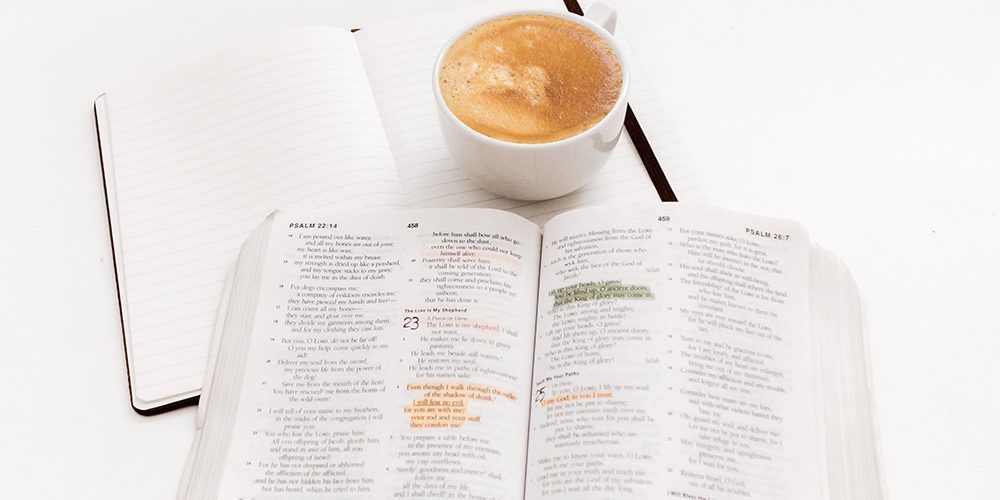 PSALM 22:14
458
I am poured out like water,
and all my bones are out of joint;
my heart is like wax;
it is melted within my breast;
my strength is dried up like a potsherd,
and my tongue sticks to my jaws;
you lay me in the dust of death.
For dogs encompass me;
a company of evildoers encircles me;
they have pierced my hands and feet—
I can count all my bones—
they stare and gloat over me;
they divide my garments among them,
and for my clothing they cast lots.
But you, O LORD, do not be far off!
O you my help, come quickly to my
aid!
Deliver my soul from the sword,
my precious life from the power of
the dog!
Save me from the mouth of the lion!
You have rescued me from the horns of
the wild oxen!
I will tell of your name to my brothers;
in the midst of the congregation I will
praise you:
You who fear the LORD, praise him!
All you offspring of Jacob, glorify him,
and stand in awe of him, all you
offspring of Israel!
For he has not despised or abhorred
the affliction of the afflicted,
and he has not hidden his face from him,
but has heard, when he cried to him.
before him shall bow all who go
down to the dust,
even the one who could not keep
himself alive.
Posterity shall serve him;
it shall be told of the Lord to the
coming generation;
they shall come and proclaim his
righteousness to a people yet
unborn,
that he has done it.
The LORD Is My Shepherd
23 A PSALM OF DAVID.
The LORD is my shepherd; I shall
not want.
He makes me lie down in green
pastures.
He leads me beside still waters.
He restores my soul.
He leads me in paths of righteousness
for his name's sake.
Even though I walk through the valley
of the shadow of death,
I will fear no evil,
for you are with me;
your rod and your staff,
they comfort me.
You prepare a table before me
in the presence of my enemies;
you anoint my head with oil;
my cup overflows.
Surely goodness and mercy shall
follow me
all the days of my life,
and I shall dwell in the house of the
459
PSALM 26:7
He will receive blessing from the LORD
and righteousness from the God of
his salvation.
Such is the generation of those who
seek him,
who seek the face of the God of
Jacob. Selah
Lift up your heads, O gates!
And be lifted up, O ancient doors,
that the King of glory may come in.
Who is this King of glory?
The LORD, strong and mighty,
the LORD, mighty in battle!
Lift up your heads, O gates!
And lift them up, O ancient doors,
that the King of glory may come in.
Who is this King of glory?
The LORD of hosts,
he is the King of glory! Selah
Teach Me Your Paths
25 OF DAVID.
To you, O LORD, I lift up my soul.
O my God, in you I trust;
let me not be put to shame;
let not my enemies exult over me.
Indeed, none who wait for you shall be
put to shame;
they shall be ashamed who are
wantonly treacherous.
Make me to know your ways, O LORD;
teach me your paths.
Lead me in your truth and teach me,
for you are the God of my salvation;
for you I wait all the day long.
For your name's sake, O LORD,
pardon my guilt, for it is great.
Who is the man who fears the LORD?
Him will he instruct in the way
that he should choose.
His soul shall abide in well-being,
and his offspring shall inherit the land.
The friendship of the LORD is for those
who fear him,
and he makes known to them his
covenant.
My eyes are ever toward the LORD,
for he will pluck my feet out of the
net.
Turn to me and be gracious to me,
for I am lonely and afflicted.
The troubles of my heart are enlarged;
bring me out of my distresses.
Consider my affliction and my trouble,
and forgive all my sins.
Consider how many are my foes,
and with what violent hatred they
hate me.
Oh, guard my soul, and deliver me!
Let me not be put to shame, for I
take refuge in you.
May integrity and uprightness
preserve me,
for I wait for you.
Redeem Israel, O God,
out of all his troubles.
I Will Bless the